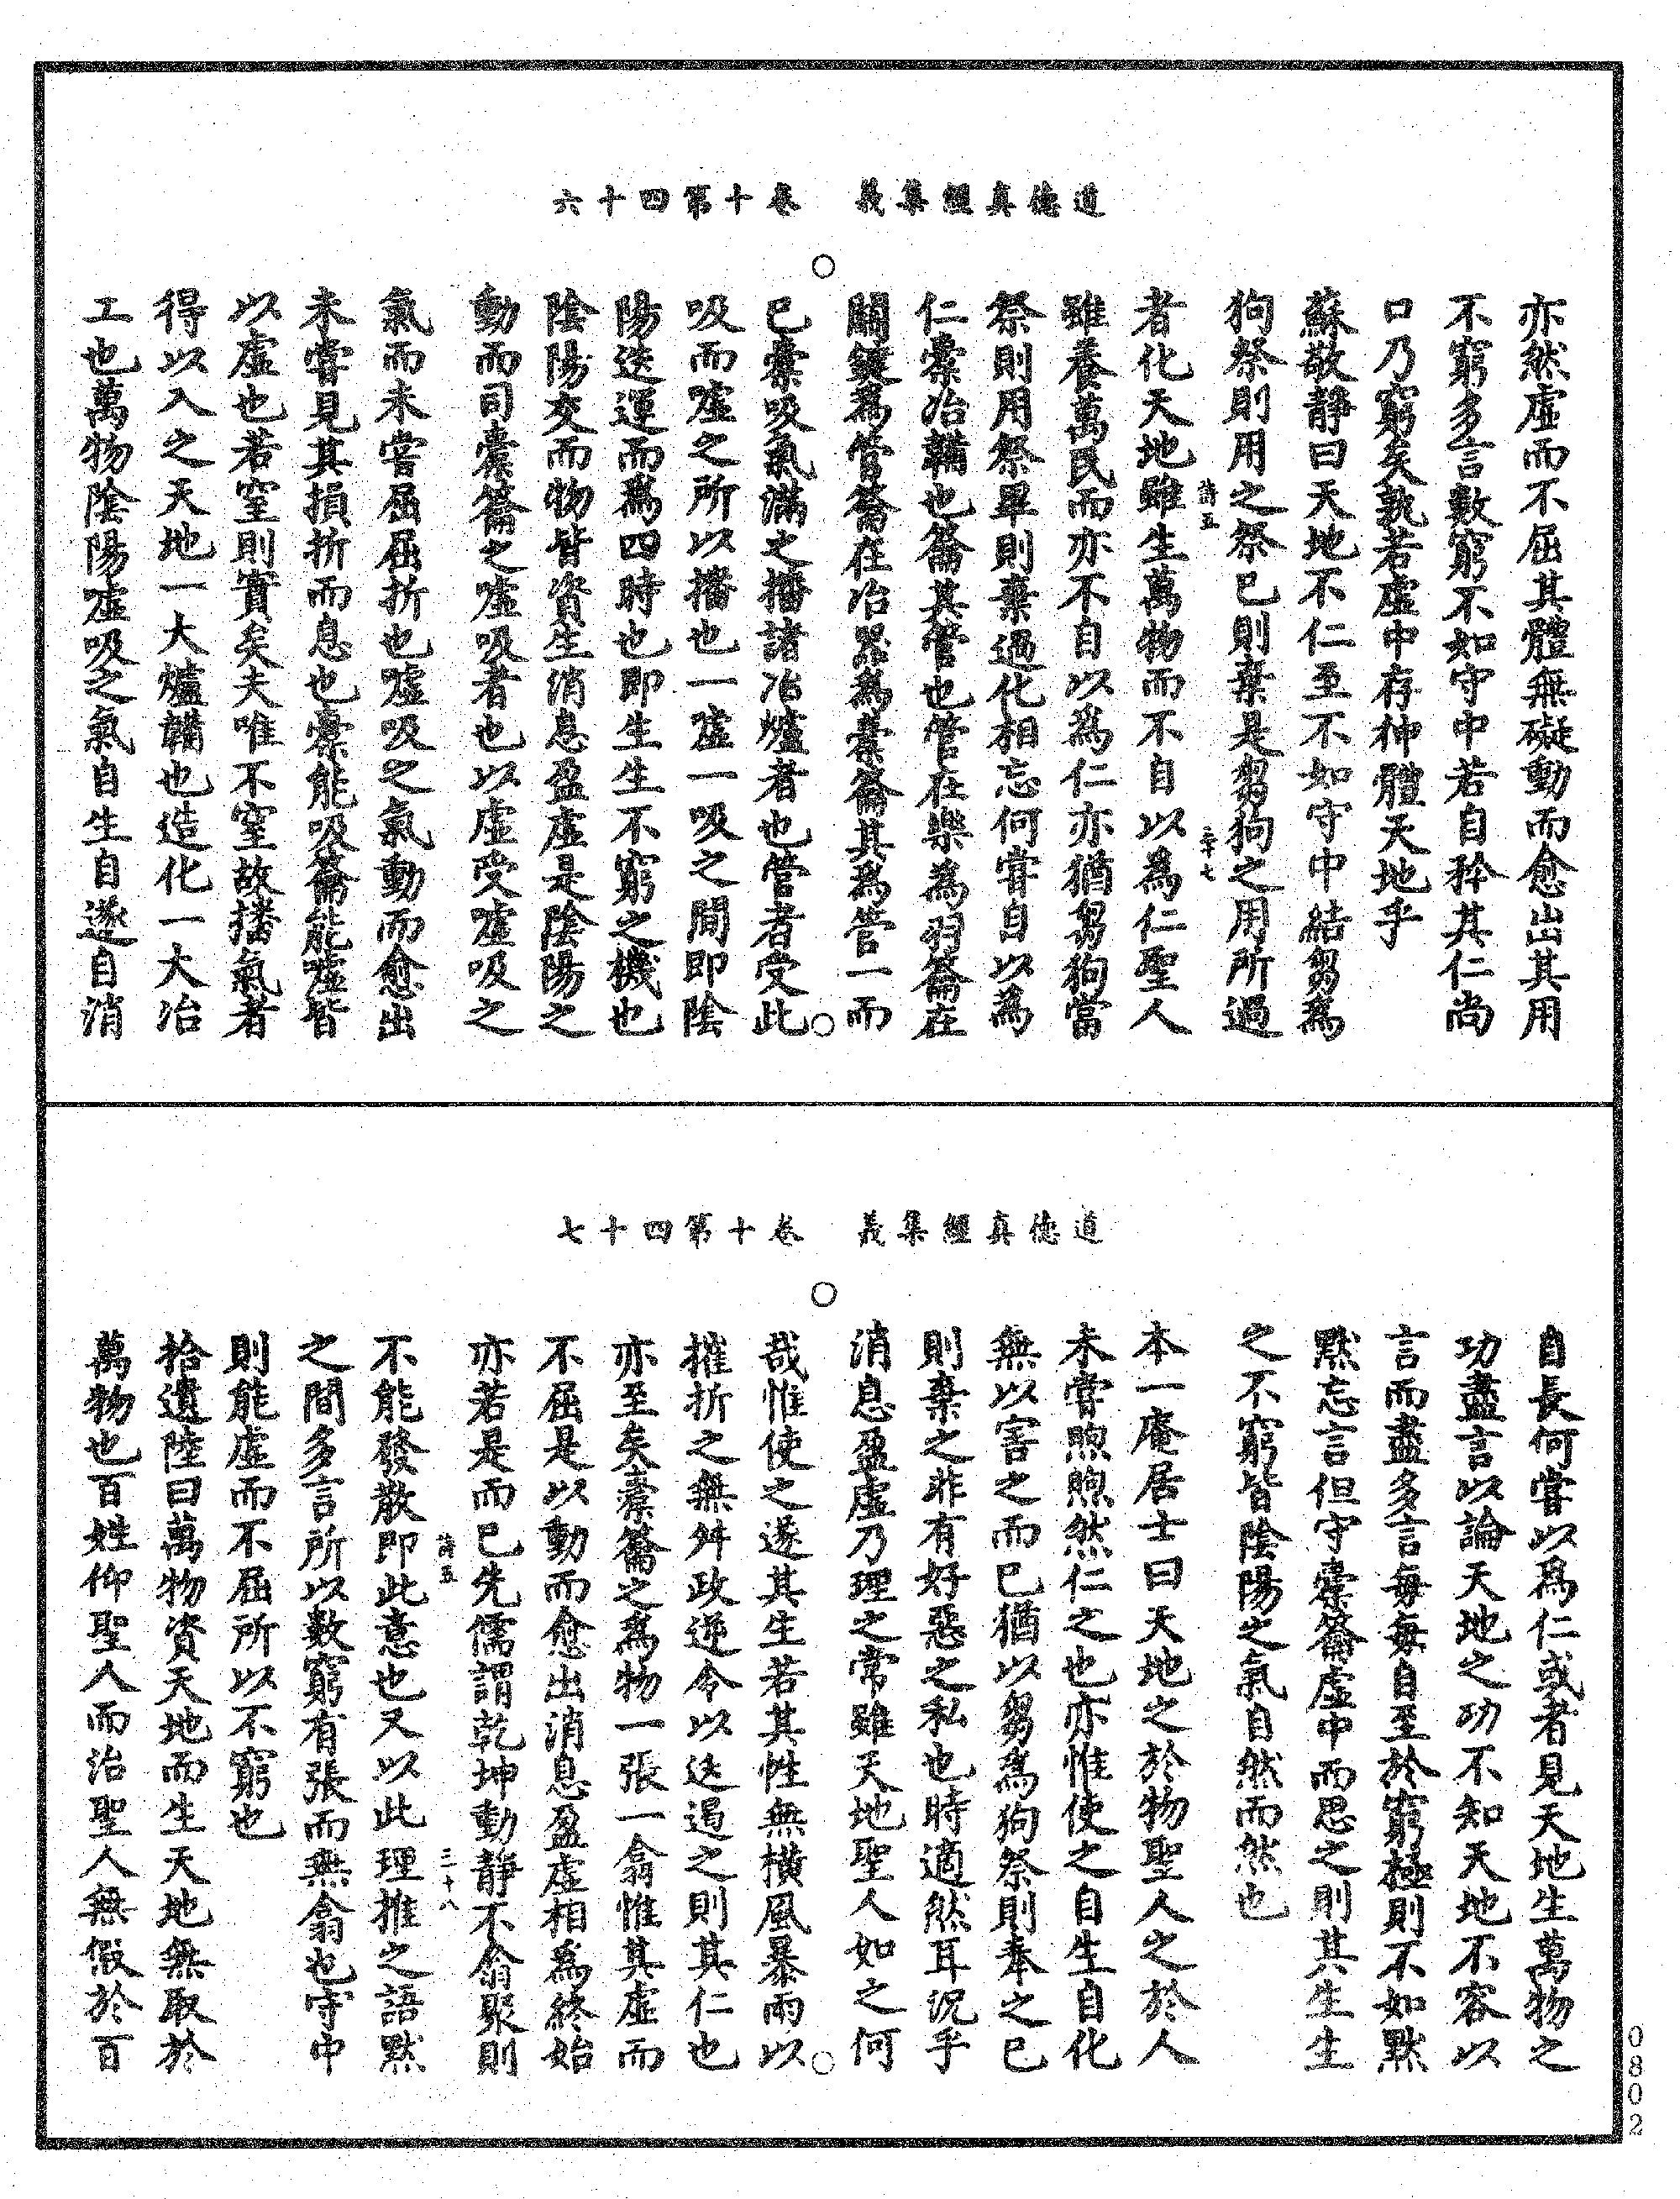 道德真經集義 卷十第四十六
亦然虛而不屈其體無礙動而愈出其用
不窮多言數窮不如守中若自矜其仁尚
口乃窮矣孰若虛中存神體天地乎
蘇敬靜曰天地不仁至不如守中結芻爲
狗祭則用之祭已則棄是芻狗之用所過
者化天地雖生萬物而不自以爲仁聖人
雖養萬民而亦不自以爲仁亦猶芻狗當
祭則用祭畢則棄過化相忘何甞自以爲
仁橐冶鞴也籥其管也管在樂為羽籥在
關鍵爲管籥在冶器爲橐籥其爲管一而
已橐吸氣滿之播諸冶爐者也管者受此
吸而噓之所以播也一噓一吸之間即陰
陽迭運而爲四時也即生生不窮之機也
陰陽交而物皆資生消息盈虛是陰陽之
動而司橐籥之噓吸者也以虛受噓吸之
氣而未甞屈屈折也噓吸之氣動而愈出
未甞見其損折而息也橐能吸籥能噓皆
以虛也若窒則實矣夫唯不窒故播氣者
得以入之天地一大爐鞴也造化一大冶
工也萬物陰陽噓吸之氣自生自遂自消
道德真經集義 卷十第四十七
自長何甞以爲仁或者見天地生萬物之
功盡言以論天地之功不知天地不容以
言而盡多言每每自至於窮極則不如默
默忘言但守橐籥虛中而思之則其生生
之不窮皆陰陽之氣自然而然也
本一庵居士曰天地之於物聖人之於人
未甞煦煦然仁之也亦惟使之自生自化
無以害之而已猶以芻爲狗祭則奉之已
則棄之非有好惡之私也時適然耳況乎
消息盈虛乃理之常雖天地聖人如之何
哉惟使之遂其生若其性無橫風暴雨以
摧折之無舛政逆令以迭遏之則其仁也
亦至矣橐籥之爲物一張一翕惟其虛而
不屈是以動而愈出消息盈虛相爲終始
亦若是而已先儒謂乾坤動靜不翕聚則
不能發散即此意也又以此理推之語默
之間多言所以數窮有張而無翕也守中
則能虛而不屈所以不窮也
拾遺陸曰萬物資天地而生天地無取於
萬物也百姓仰聖人而治聖人無假於百
三十七
三十八
0802